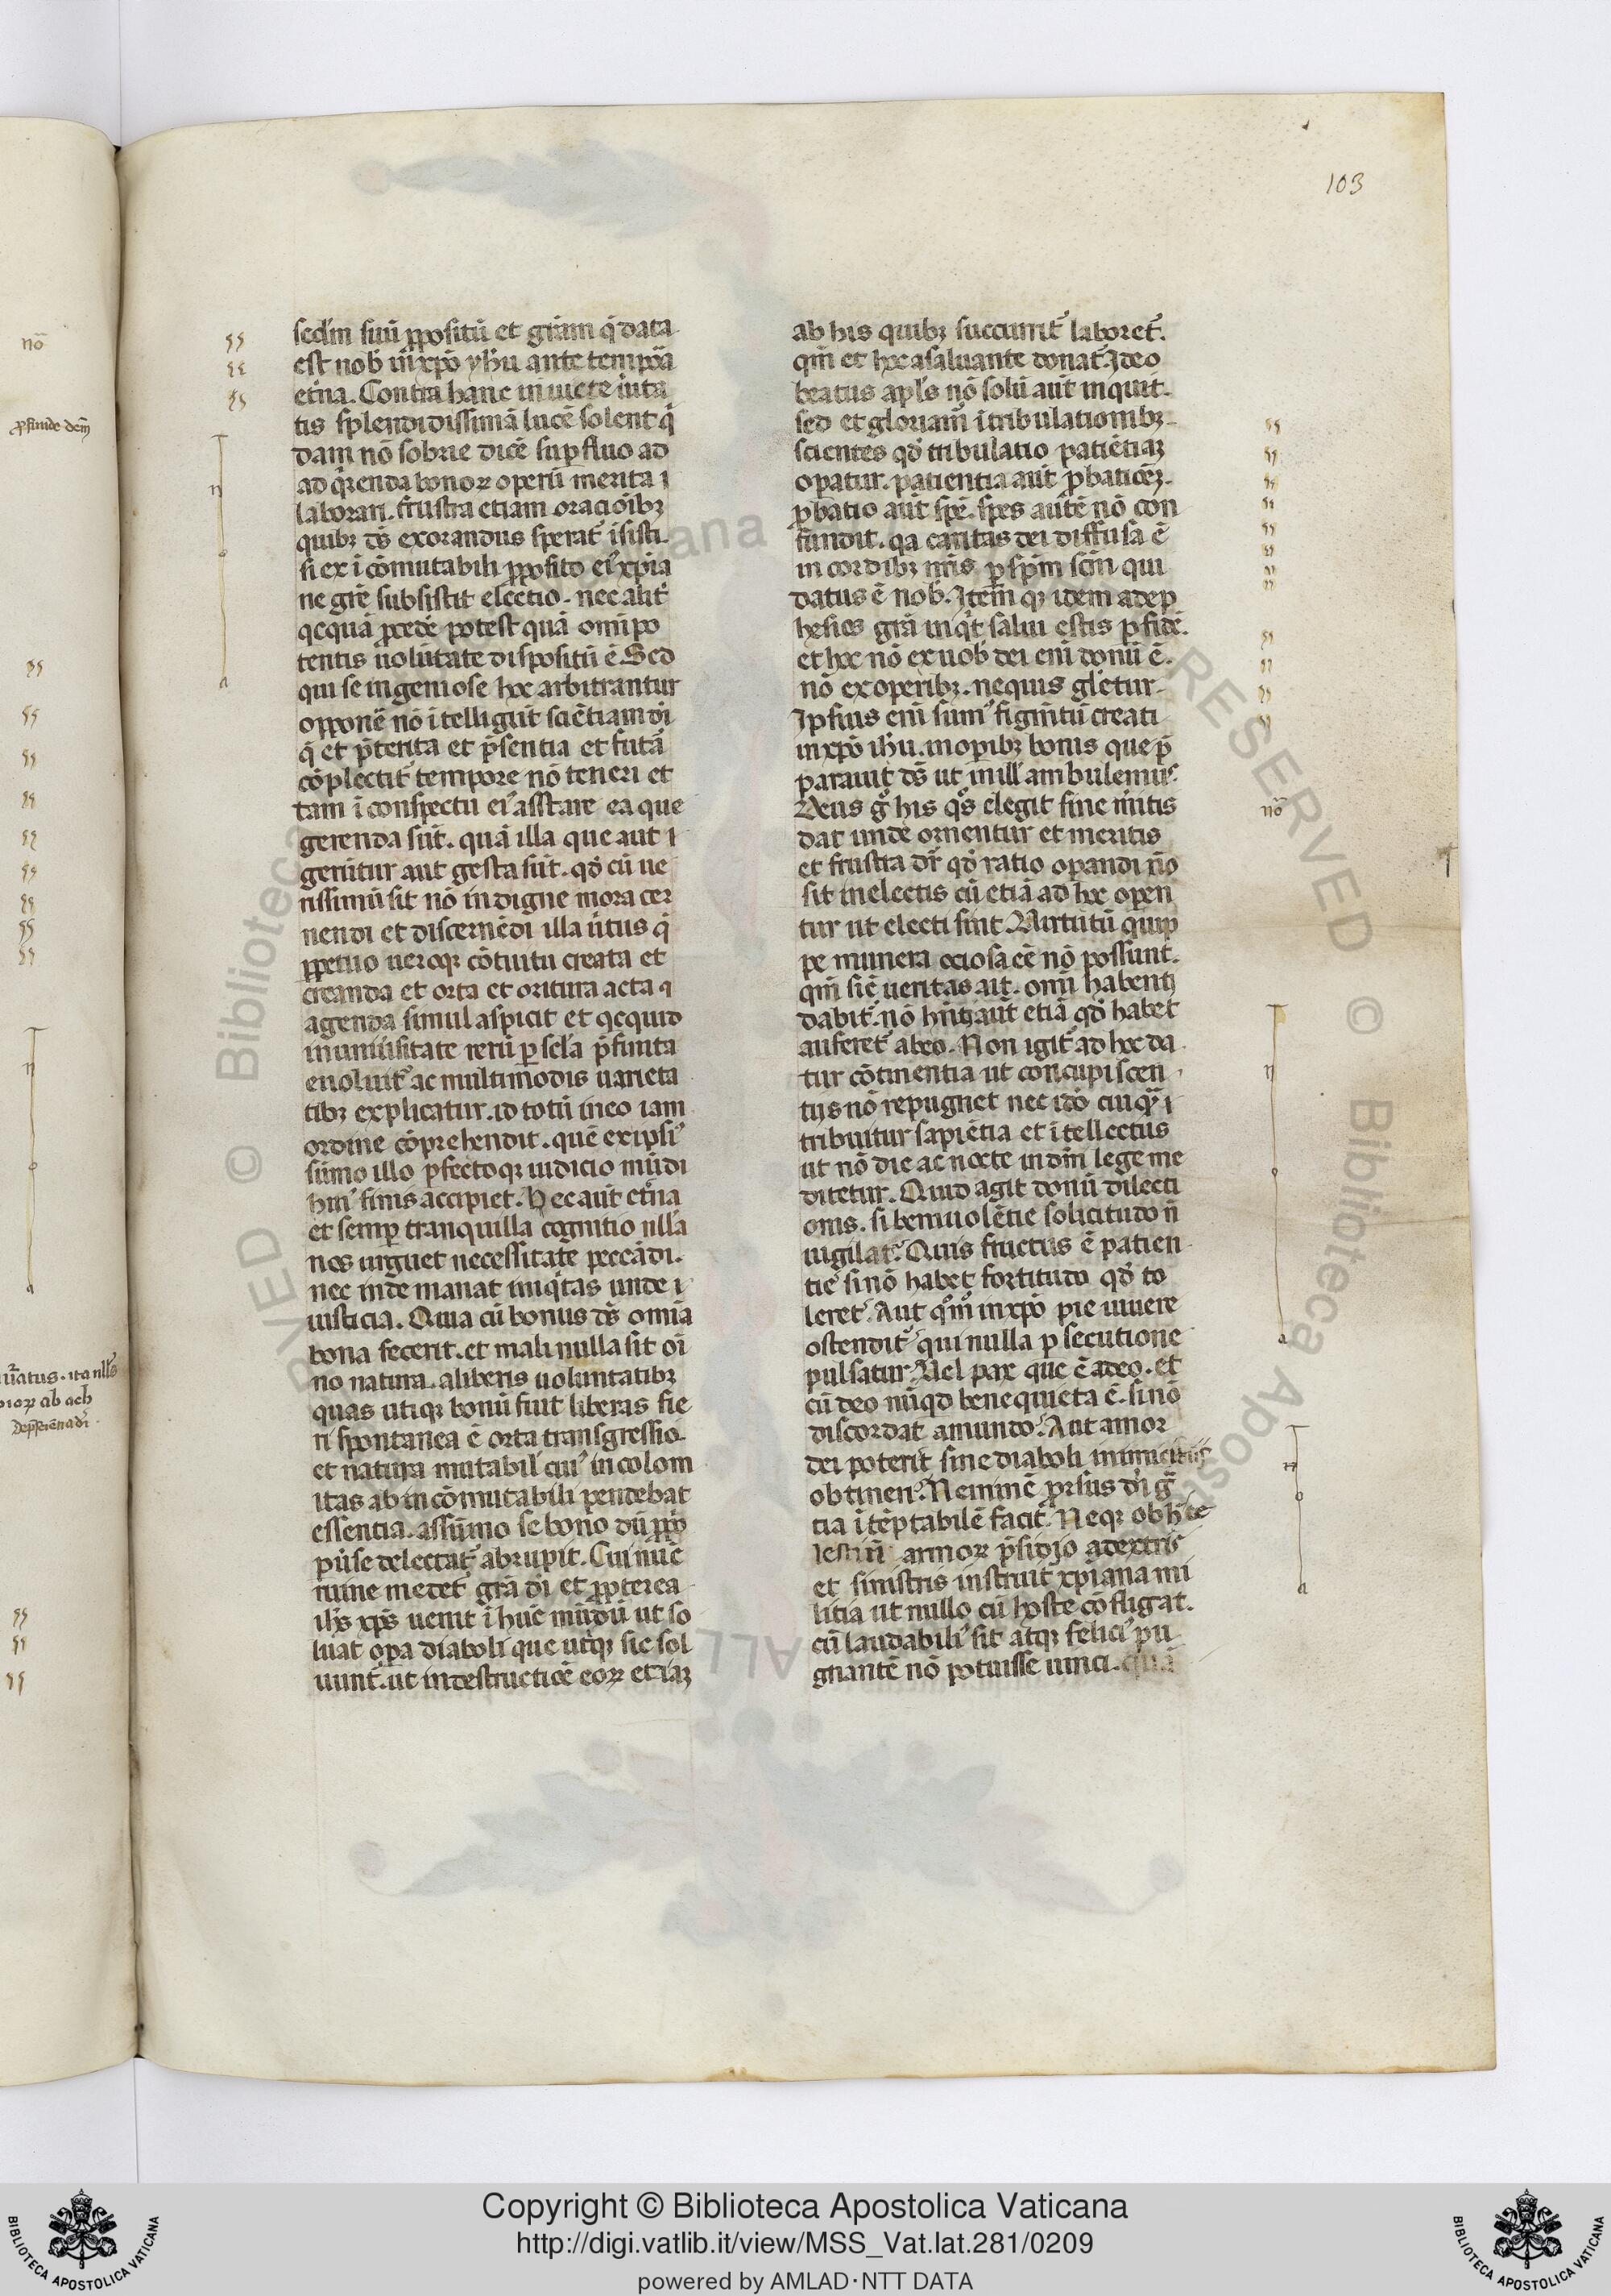 103
sedm suū ppositū et grām q̄ data
est nob in xpō yhu ante tempora
etna. Contra hanc inuicte uita
tis splendidissimā lucē solent q̄
dam nō sobrie dicē supfluo ad
ad q̄renda bonoꝝ operū merita ı
laborari. frustra etiam oracionibꝫ
quibꝫ ds̄ exorandus sperat᷑ isisti.
si ex icōmutabili pposito ei᷒ xpia
ne grē subsistit electio. nec alit᷑
qcquā pcedē potest quā omipo
tentis uolūtate dispositū ē. Sed
qui se ingeniose hoc arbitrantur
opponē nō itelligūt sciētiam di
q̄ et p̄terita et p̄sentia et futā
cōplectit᷑ tempore nō teneri et
tam i conspectu ei᷒ asstare ea que
gerenda sūt. quā illa que aut ı
gerūtur aut gesta sūt. qd̄ cū ue
rissimū sit nō indigne mora cer
nendi et discernēdi illa ūtus q̄
ppetuo ueroqꝫ cōtuitu creata et
creanda et orta et oritura acta ⁊
agenda simul aspicit et qcquid
in uniūsitate rerū p scla p̄finita
euoluit᷑ ac multimodis uarieta
tibꝫ explicatur. id totū in eo iam
ordine cōprehendit. quē ex ipsi᷒
sūmo illo pfectoqꝫ iudicio mūdi
hui᷒ finis accipiet. Hec aūt etn̄a
et semp tranquilla cognitio nlla
nos urguet necessitate peccādi.
nec inde manat iniq̄tas unde ı
iusticia. Quia cū bonus ds̄ omīa
bona fecerit. et mali nulla sit oī
no natura. a liberis uoluntatibꝫ
quas utiqꝫ bonū fuit liberas fie
ri spontanea ē orta transgressio.
et natura mutabil᷒ cui᷒ incolom
itas ab incōmutabili pendebat
essentia. a sūmo se bono dū pp̄o
pūse delectat᷑ abrupit. Cui nūc
ruine medet᷑ grā di et ppterea
ihs xps uenit i hūc mūdū ut so
luat opa diaboli que utiqꝫ sic sol
uunt᷑. ut in destructiōē eoꝝ etiaꝫ
ab his quibꝫ succurrit᷑ laboret᷑.
qm̄ et hoc a saluante donat᷑. Ideo
beatus apls nō solū aūt inquit.
sed et gloriam̄ i tribulationibꝫ.
scientes qd̄ tribulatio patiētiaꝫ
opatur. patientia aūt pbaticōēꝫ.
pbatio aūt spē. spes autē nō con
fundit. qa caritas dei diffusa ē
in cordibꝫ nr̄is p spm̄ scm̄ qui
datus ē nob. Item qꝫ idem ad ep
hesios grā inqt saluī estis p fidē.
et hoc nō ex uob dei enī donū ē.
nō ex operibꝫ. ne quis gletur.
Ipsius enī sum᷒ figmtū creati
in xpō ihu. in opibꝫ bonis que p̄
parauit ds̄ ut in ill᷒ ambulemus.
Deus g̊ his qos elegit sine m̄itis
dat unde ornentur et meritis
et frustra dr̄ qd̄ ratio opandi nō
sit in electis cū etiā ad hoc open
tur ut electi sint. Uirtutū quip
pe munera ociosa eē nō possunt.
qm̄ sic̄ ueritas ait. omī habenti
dabit᷑. nō hn̄ti aūt etiā qd̄ habet
auferet᷑ ab eo. Non igit᷑ ad hoc da
tur cōtinentia ut concupiscen
tijs nō repugnet nec idō cuiqꝫ ı
tribuitur sapiētia et itellectus
ut nō die ac nocte in dm̄ lege me
ditetur. Quid agit donū dilecti
onis. si beniuolētie solicitudo n̄
uigilat? Quis fructus ē patien
tie si nō habet fortitudo qd̄ to
leret. Aut qm̄ in xpō pie uiuere
ostendit᷑ qui nulla psecutione
pulsatur. Uel pax que ē a deo. et
cū deo nūqd bene quieta ē. si nō
discordat a mundo? Aut amor
dei poterit sine diaboli inimicitijs
obtineri? Neminē prsus di ḡ
tia itēptabilē facit. Neqꝫ ob h ce
lestiū armoꝝ p̄sidio a dextris
et sinistris instruit xpiana mi
litia ut nullo cū hoste cōfligat.
cū laudabili᷒ sit atqꝫ felici᷒ pu
gnantē nō potuisse uinci. quā
nō
nō
Copyright © Biblioteca Apostolica Vaticana
http://digi.vatlib.it/view/MSS_Vat.lat.281/0209
powered by AMLAD·NTT DATA
BIBLIOTECA APOSTOLICA VATICANA
BIBLIOTECA APOSTOLICA VATICANA